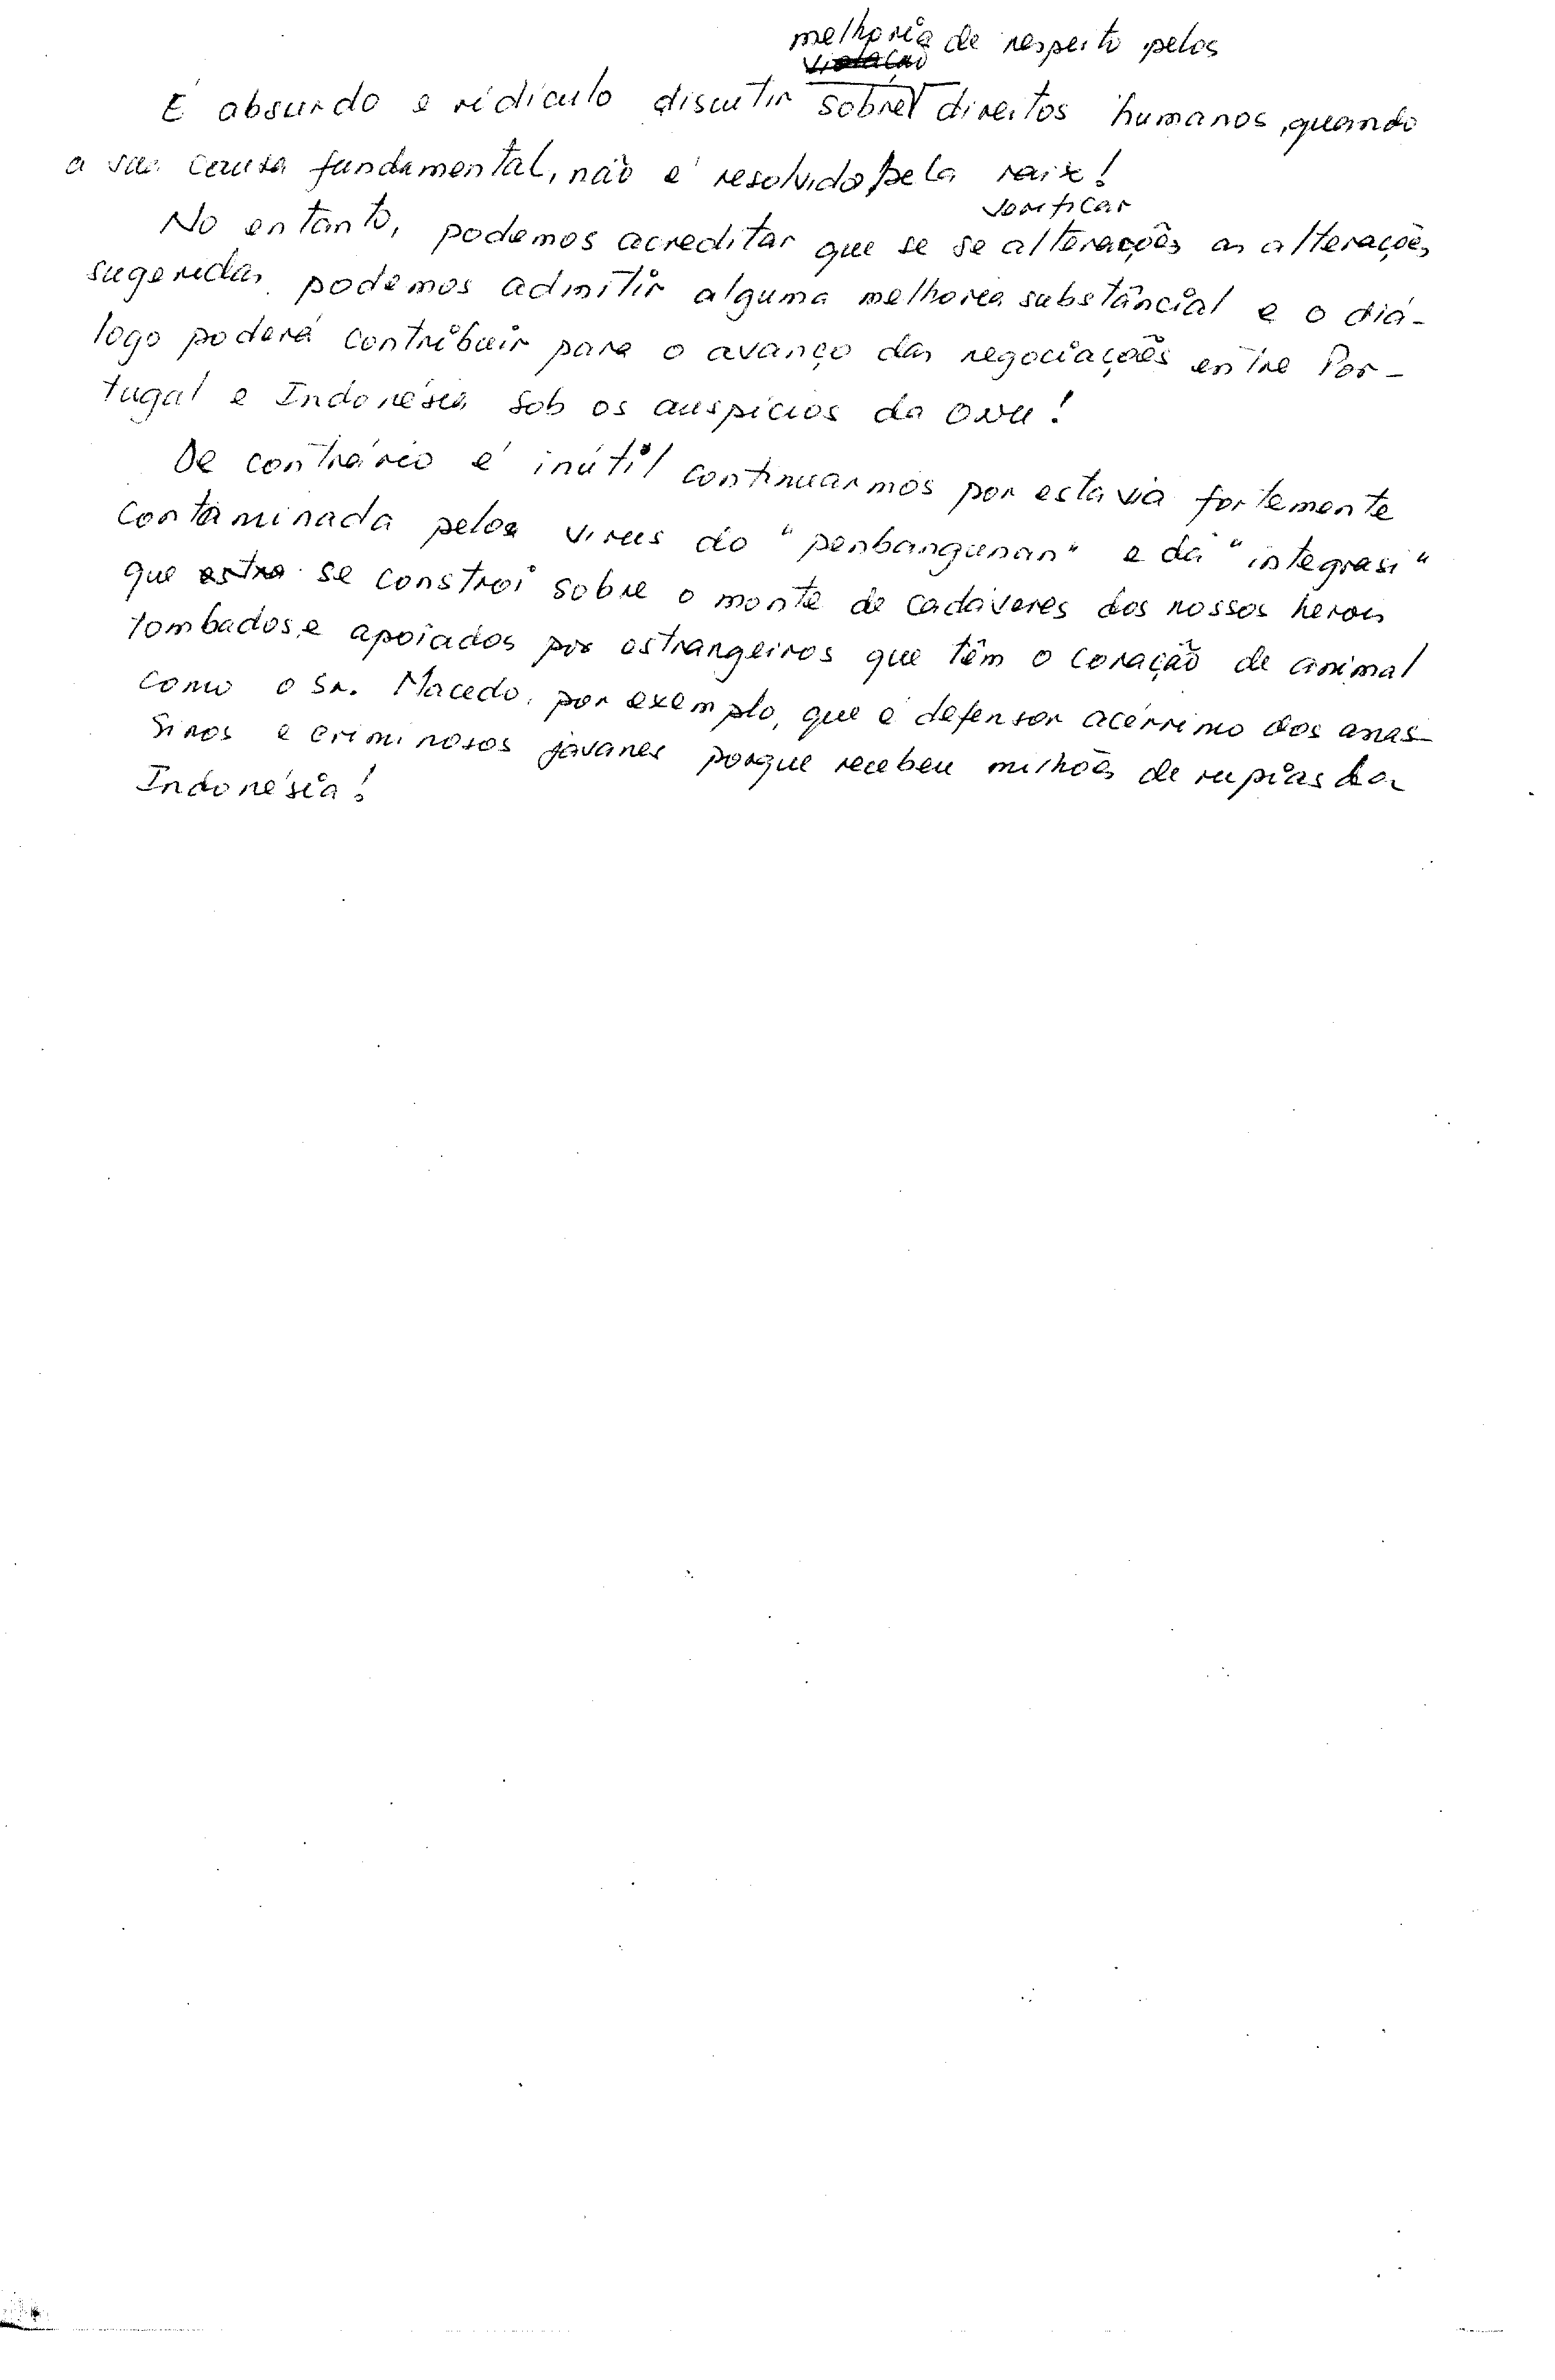 melhoria de respeito pelos
violação
É absurdo e rídiculo discutir sobre direitos humanos, quando
a sua causa fundamental, não é resolvida pela raiz!
verificar
No entanto, podemos acreditar que se se alterações as alterações
sugeridas podemos admitir alguma melhoria substâncial e o diá-
logo poderá contribuir para o avanço das negociações entre Por-
tugal e Indonésia sob os auspícios da ONU!
De contrário é inútil continuarmos por esta via fortemente
contaminada pelos virus do "penbangunan" e da "integrasi"
que se constroi sobre o monte de cadáveres dos nossos herois
tombados, e apoiados por estrangeiros que têm o coração de animal
como o Sr. Macedo, por exemplo, que é defensor acérrimo dos assas-
sinos e criminosos javanes porque recebeu milhões de rupias da
Indonésia!